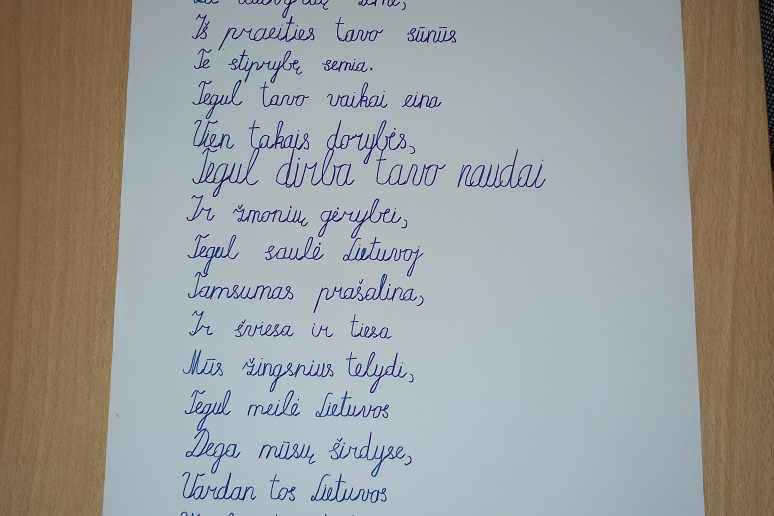 Iš praeities tavo sūnūs
Te stiprybę semia.
Tegul tavo vaikai eina
Vien takais dorybės,
Tegul dirba tavo naudai
Ir žmonių gėrybei,
Tegul saulė Lietuvoj
Tamsumas prašalina,
Ir šviesa ir tiesa
Mūs žingsnius telydi,
Tegul meilė Lietuvos
Dega mūsų širdyse,
Vardan tos Lietuvos